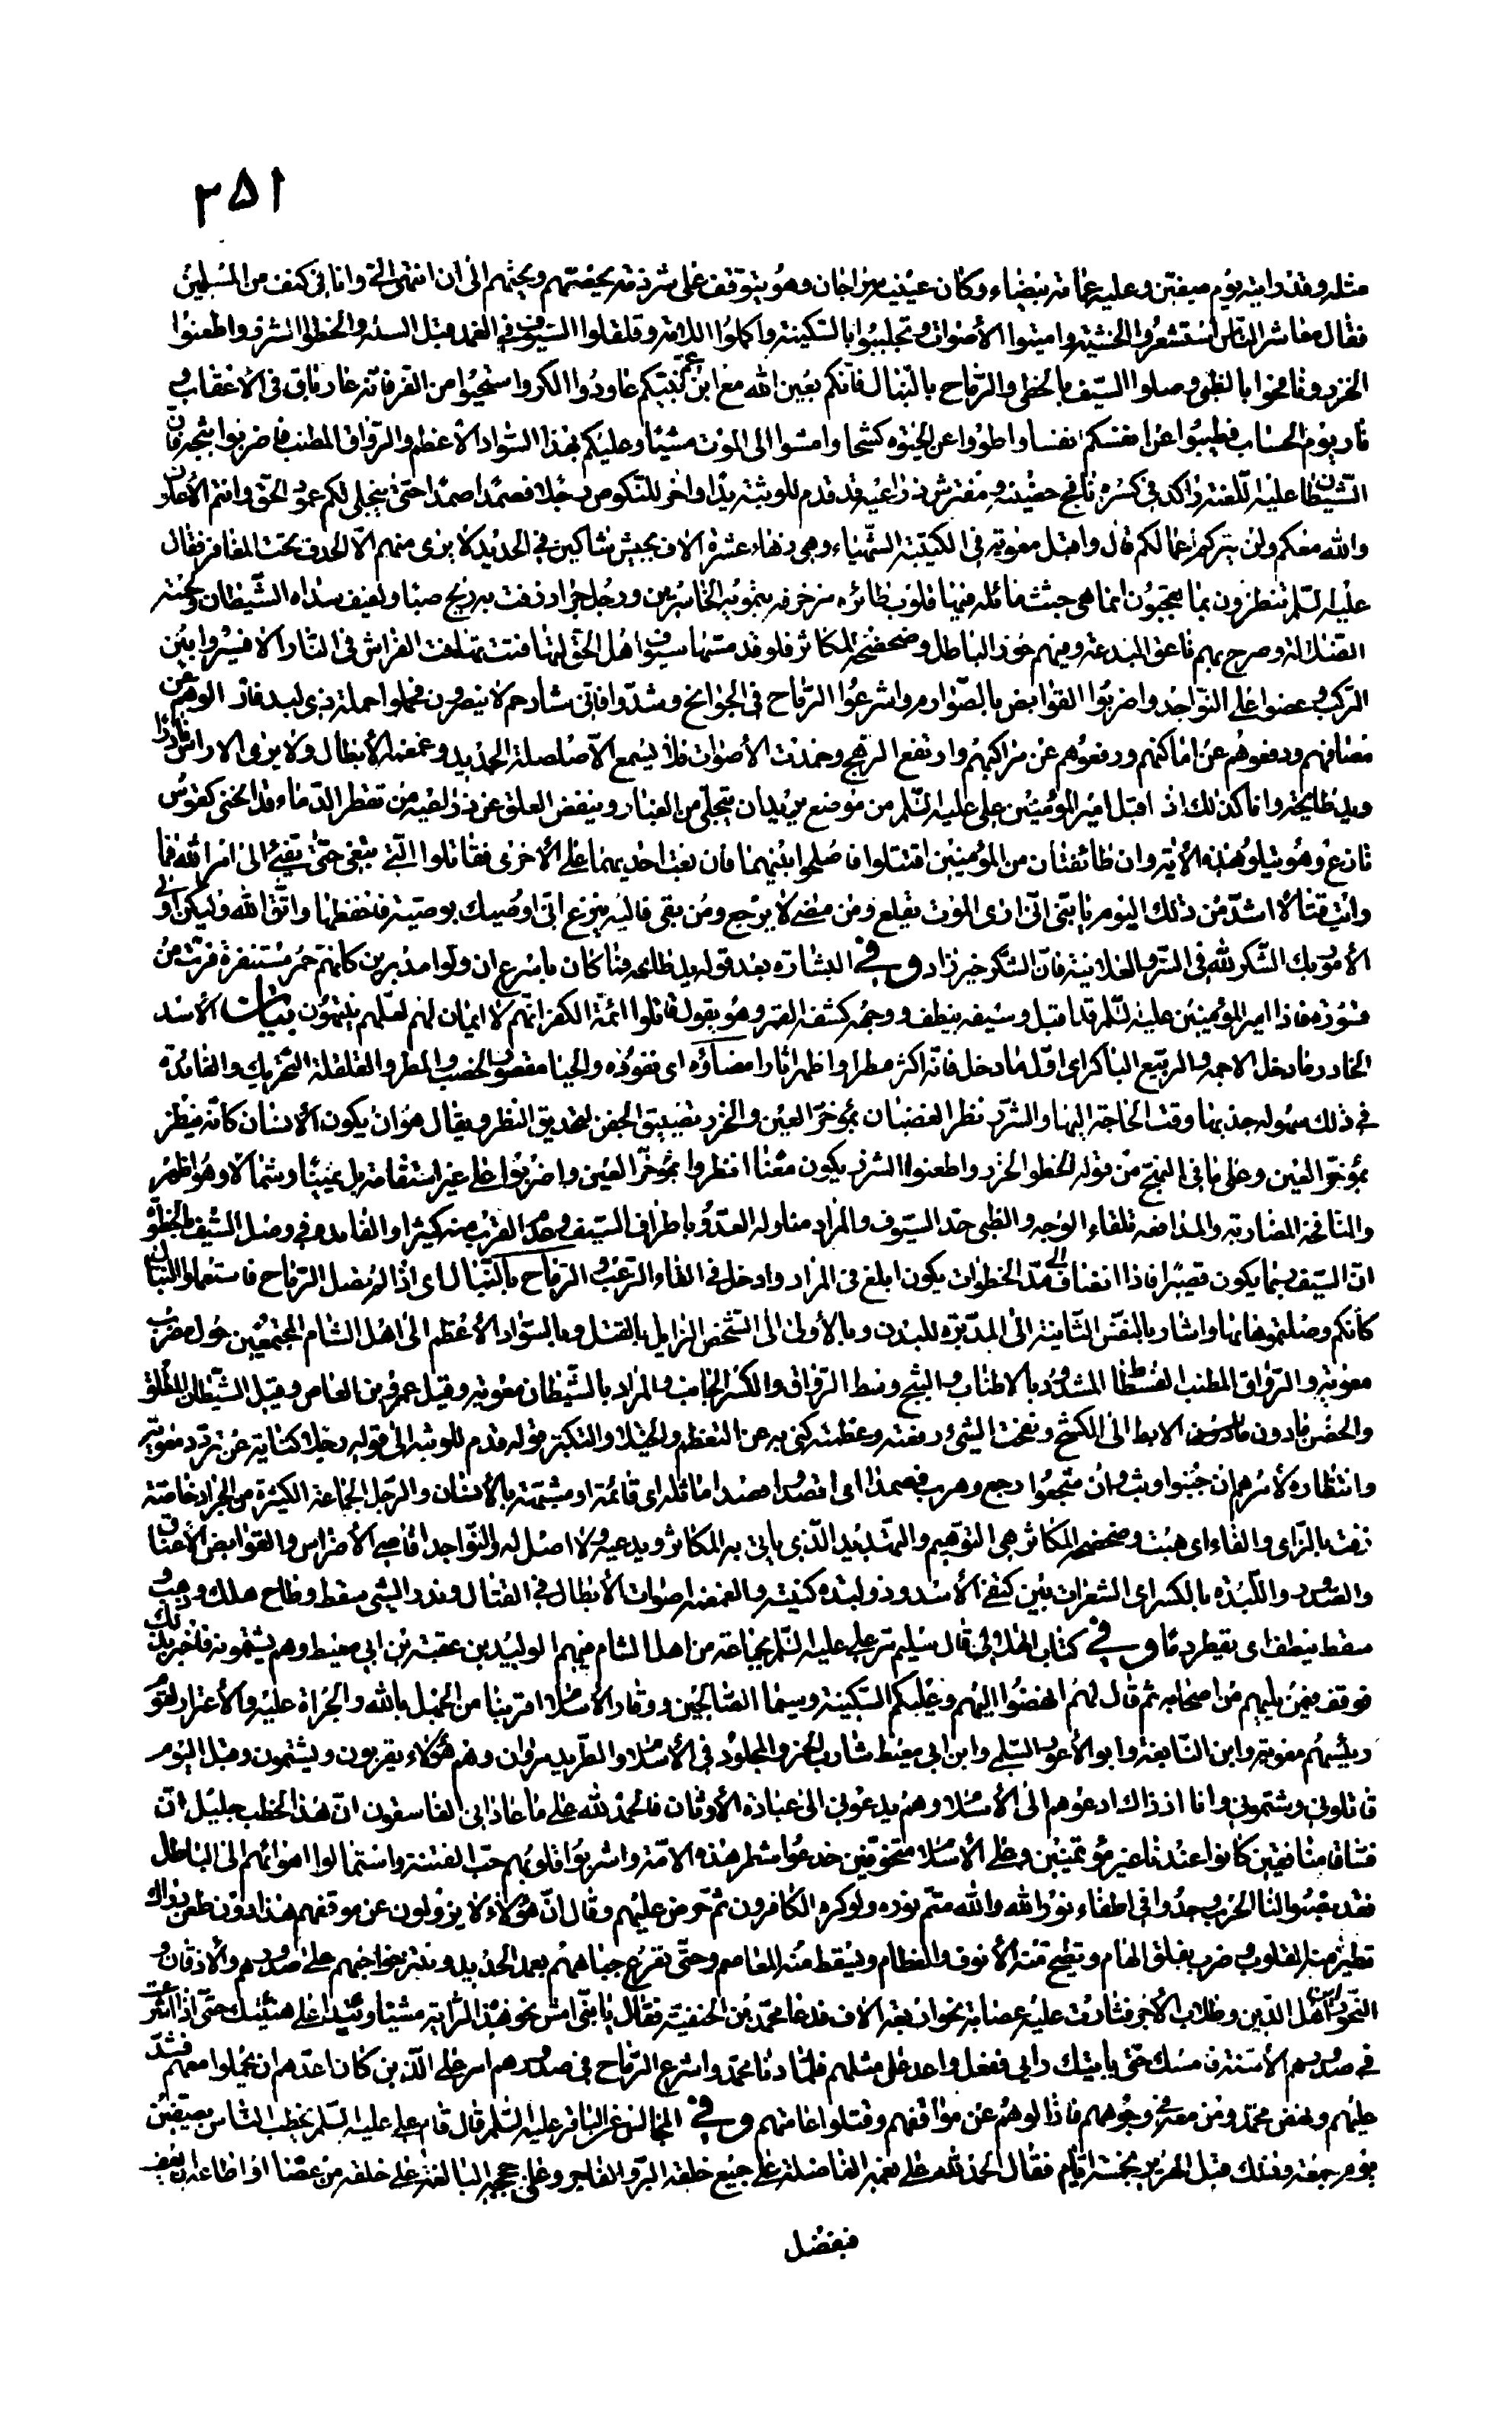 ٣٥١
مثله وقد رأيته يوم صفين وعليه عمامة بيضاء وكان عينيه سراجان وهو يتوقف على شرذمة يحضّهم ويحثهم الى ان انتهى الىّ وانا في كنف من المسلمين
فقال معاشر الناس استشعروا الخشية واميتوا الأصوات وتجلببوا بالسكينة واكملوا اللامة وقلقلوا السيوف في الغمد قبل السلة والحظوا الشزر واطعنوا
الخزر ونافحوا بالظبى وصلوا السيف بالخطى والرّماح بالنّبال فانّكم بعين الله مع ابن عمّ نبيّكم عاودوا الكر واستحيوا من الفر فانه عار باق في الأعقاب و
نار يوم الحساب فطيبوا عن انفسكم نفسا واطووا عن الحيوة كشحا وامشوا الى الموت مشيًا وعليكم بهذا السّواد الأعظم والرّواق المطنب فاضربوا ثبجه فان
الشّيطان عليه اللّعنة راكد في كسره نافج حضنيه ومفترش ذراعيه قد قدم للوثبة يدًا واخر للنكوص رجلا فصمدًا صمدًا حتّى ينجلى لكم عمود الحقّ وانتم الأعلون
والله معكم ولن يتركم اعمالكم قال واقبل معوية في الكتيبة الشّهباء وهي زهاء عشرة الاف بجيش شاكين في الحديد لا يرى منهم الّا الحدق تحت المغافر فقال
عليه السّلم تنظرون بما تعجبون انما هي جثث ماثلة فيها قلوب طائرة مزخرفة بتمويه الخاسرين ورجل جراد زفت به ريح صبا ولفيف سداه الشّيطان ولحمته
الضّلالة وصرح بهم ناعق البدعة وفيهم خور الباطل وضحضحة المكاثر فلو قد مسّتها سيوف اهل الحق لتهافتت تهافت الفراش في النّار الا فسووا بين
الركب وعضوا على النّواجذ واضربوا القوابض بالصّوارم واشرعوا الرّماح في الجوانح وشدّوا فانّي شادّ حم لا ينصرون فحملوا حملة ذي لبد فازالوهم عن
مصافهم ودفعوهم عن اماكنهم ورفعوهم عن مراكبهم وارتفع الرّهج وخمدت الأصوات فلا يسمع الّا صلصلة الحديد وغمغمة الأبطال ولا يرى الا راس نادر
ويد طايحة وانا كذلك اذ اقبل امير المؤمنين على عليه السّلم من موضع يريد ان يتجلّى من الغبار وينفض العلق عن ذراعيه من تقطر الدّماء وقد انحنى كقوس
نازع وهو يتلو هذه الأية وان طائفتان من المؤمنين اقتتلوا فاصلحوا بينهما فان بغت احديهما على الأخرى فقاتلوا الّتي تبغي حتّى تفيئ الى امر الله فما
رأيت قتالا اشدّ من ذلك اليوم يا بنّي انّي ارى الموت يقلع ومن مضى لا يرجع ومن بقى فاليه ينزع انّي اوصيك بوصيّة فاحفظها واتّق الله وليكن اولى
الأمور بك الشّكر لله في السّر والعلانية فانّ الشّكر خير زاد وفي البشارة بعد قوله يد طايحة فما كان باسرع ان ولوا مدبرين كانهم حمر مستنفرة فرّت من
قسورة فاذا امير المؤمنين عليه السّلم قد اقبل وسيفه ينطف ووجهه كشقة القمر وهو يقول قاتلوا ائمّة الكفر انّهم لا ايمان لهم لعلّهم ينتهون بيان الأسد
الخادر ما دخل الاجمة والربيع الباكر اى اوّل ما دخل فانّه اكثر مطرا واظهر اثارا مضاؤه اى نفوذه والحيا مقصور الخصب والمطر والقلقلة التّحريك والفائدة
في ذلك سهولة جذبها وقت الحاجة اليها والشزر نظر الغضبان بمؤخر العين والخزر تضييق الجفن لتحديق النظر ويقال هو ان يكون الأنسان كانّه ينظر
بمؤخر العين وعلى ما في النهج من قوله الحظوا الخزر واطعنوا الشزر يكون معنا انظروا بمؤخر العين واضربوا على غير استقامة بل يمينًا وشمالا وهو اظهر
والمنافحة المضاربة والمدافعة تلقاء الوجه والظبى حدّ السيوف والمراد مناولة العدو باطراف السّيف وهذا لقرب منه كثيرا والفائدة في وصل السّيف بالخطوة
انّ السّيف ربما يكون قصيرًا فاذا انضاف الى مدّ الخطوات يكون ابلغ في المراد وادخل في القاء الرّعب والرّماح بالنّبال اى اذا لم تصل الرّماح فاستعملوا النّبال
كانّكم وصلتموها بها واشار بالنفس الثّانية الى المدبّرة للبدن وبالأولى الى الشّخص الزايل بالقتل وبالسّواد الأعظم الى اهل الشام المجتمعين حول مضرب
معوية والرّواق المطنب الفسطاط المشدود بالاطناب والثبج وسط الرّواق والكسر الجانب والمراد بالشّيطان معوية وقيل عمرو بن العاص وقيل الشّيطان المطلق
والحضن مادون الابط الى الكشح ونفجت الشيئ رفعته وعظمته كنى به عن التعظم والخيلاء والتكبر قوله قدم للوثبة الى قوله رجلا كناية عن تردد معوية
وانتظاره لأمرهم ان جبنوا وثب وان شجعوا رجع وهرب فصمدا اى اقصدوا قصدا ماثلة اى قائمة او مشبّهة بالأنسان والرّجل الجماعة الكثيرة من الجراد خاصّة
زفت بالزّاى والفاء اى هبت وضحضحة المكاثر هي التوهيم والتّهديد الّذي ياتى به المكاثر ويدعيه ولا اصل له والنّواجذ اقاصي الأضراس والقوابض الأعناق
والصّدور واللّبدة بالكسر اى الشعرات بين كتفي الأسد وذو لبدة كنيته والغمغمة اصوات الأبطال في القتال وندر الشيئ سقط وطاح هلك وذهب و
سقط ينطف اى يقطر دما وفي كتاب الهلالي قال سليم مرّ على عليه السّلم بجماعة من اهل الشام فيهم الوليد بن عقبة بن ابي معيط وهم يشتمونه فاخبر بذلك
فوقف فيمن يليهم من اصحابه ثم قال لهم انهضوا اليهم وعليكم السّكينة وسيما الصّالحين ووقار الأسلام اقربنا من الجهل بالله والجرأة عليه والأغترار لقوم
رئيسهم معوية وابن النّابغة وابو الأعور السّلمي وابن ابي معيط شارب الخمر والمجلود في الأسلام والطّريد مروان وهم هؤلاء يقربون ويشتمون وقبل اليوم
قاتلوني وشتموني وانا اذ ذاك ادعوهم الى الأسلام وهم يدعوني الى عبادة الأوثان فالحمد لله على ما عاداني الفاسقون انّ هذا الخطب جليل انّ
فسّاقا منافقين كانوا عندنا غير مؤتمنين وعلى الأسلام متخوّفين خدعوا شطر هذه الامّة واشربوا قلوبهم حبّ الفتنة واستمالوا اهوائهم الى الباطل
فقد نصبوا لنا الحرب وجدّوا في اطفاء نور الله والله متمّ نوره ولو كره الكافرون ثمّ حرّض عليهم وقال انّ هؤلاء لا يزولون عن موقفهم هذا دون طعن دراك
تطير منه القلوب وضرب يفلق الهام وتطيح منه الأنوف والعظام ويسقط منه المعاصم وحتّى تقرع جباههم بعمد الحديد وتنثر حواجبهم على صدورهم والأذقان و
النّحور اين اهل الدّين وطلاب الأجر فثارت عليه عصابة نحو اربعة الاف فدعا محمّد بن الحنفيّة فقال يا بنّي امش نحو هذه الرّاية مشيًا وئيدا على هنيئتك حتّى اذا اشرعت
في صدورهم الأسنّة فامسك حتّى يأتيك رايي ففعل واعد على مثلهم فلمّا دنا محمّد واشرع الرّماح في صدورهم امر على الّذين كان اعدّهم ان يحملوا معهم فشدّ
عليهم ونهض محمّد ومن معه في وجوههم فازالوهم عن مواقفهم وقتلوا عامتهم وفي المجالس عن الباقر عليه السّلم قال قام على عليه السّلم يخطب النّاس بصفّين
يوم جمعة وذلك قبل الهرير بخمسة ايّام فقال الحمد لله على نعمه الفاضلة على جميع خلقه البرّ والفاجر وعلى حججه البالغة على خلقه من عصا او اطاعه ان يعف
فبفضل